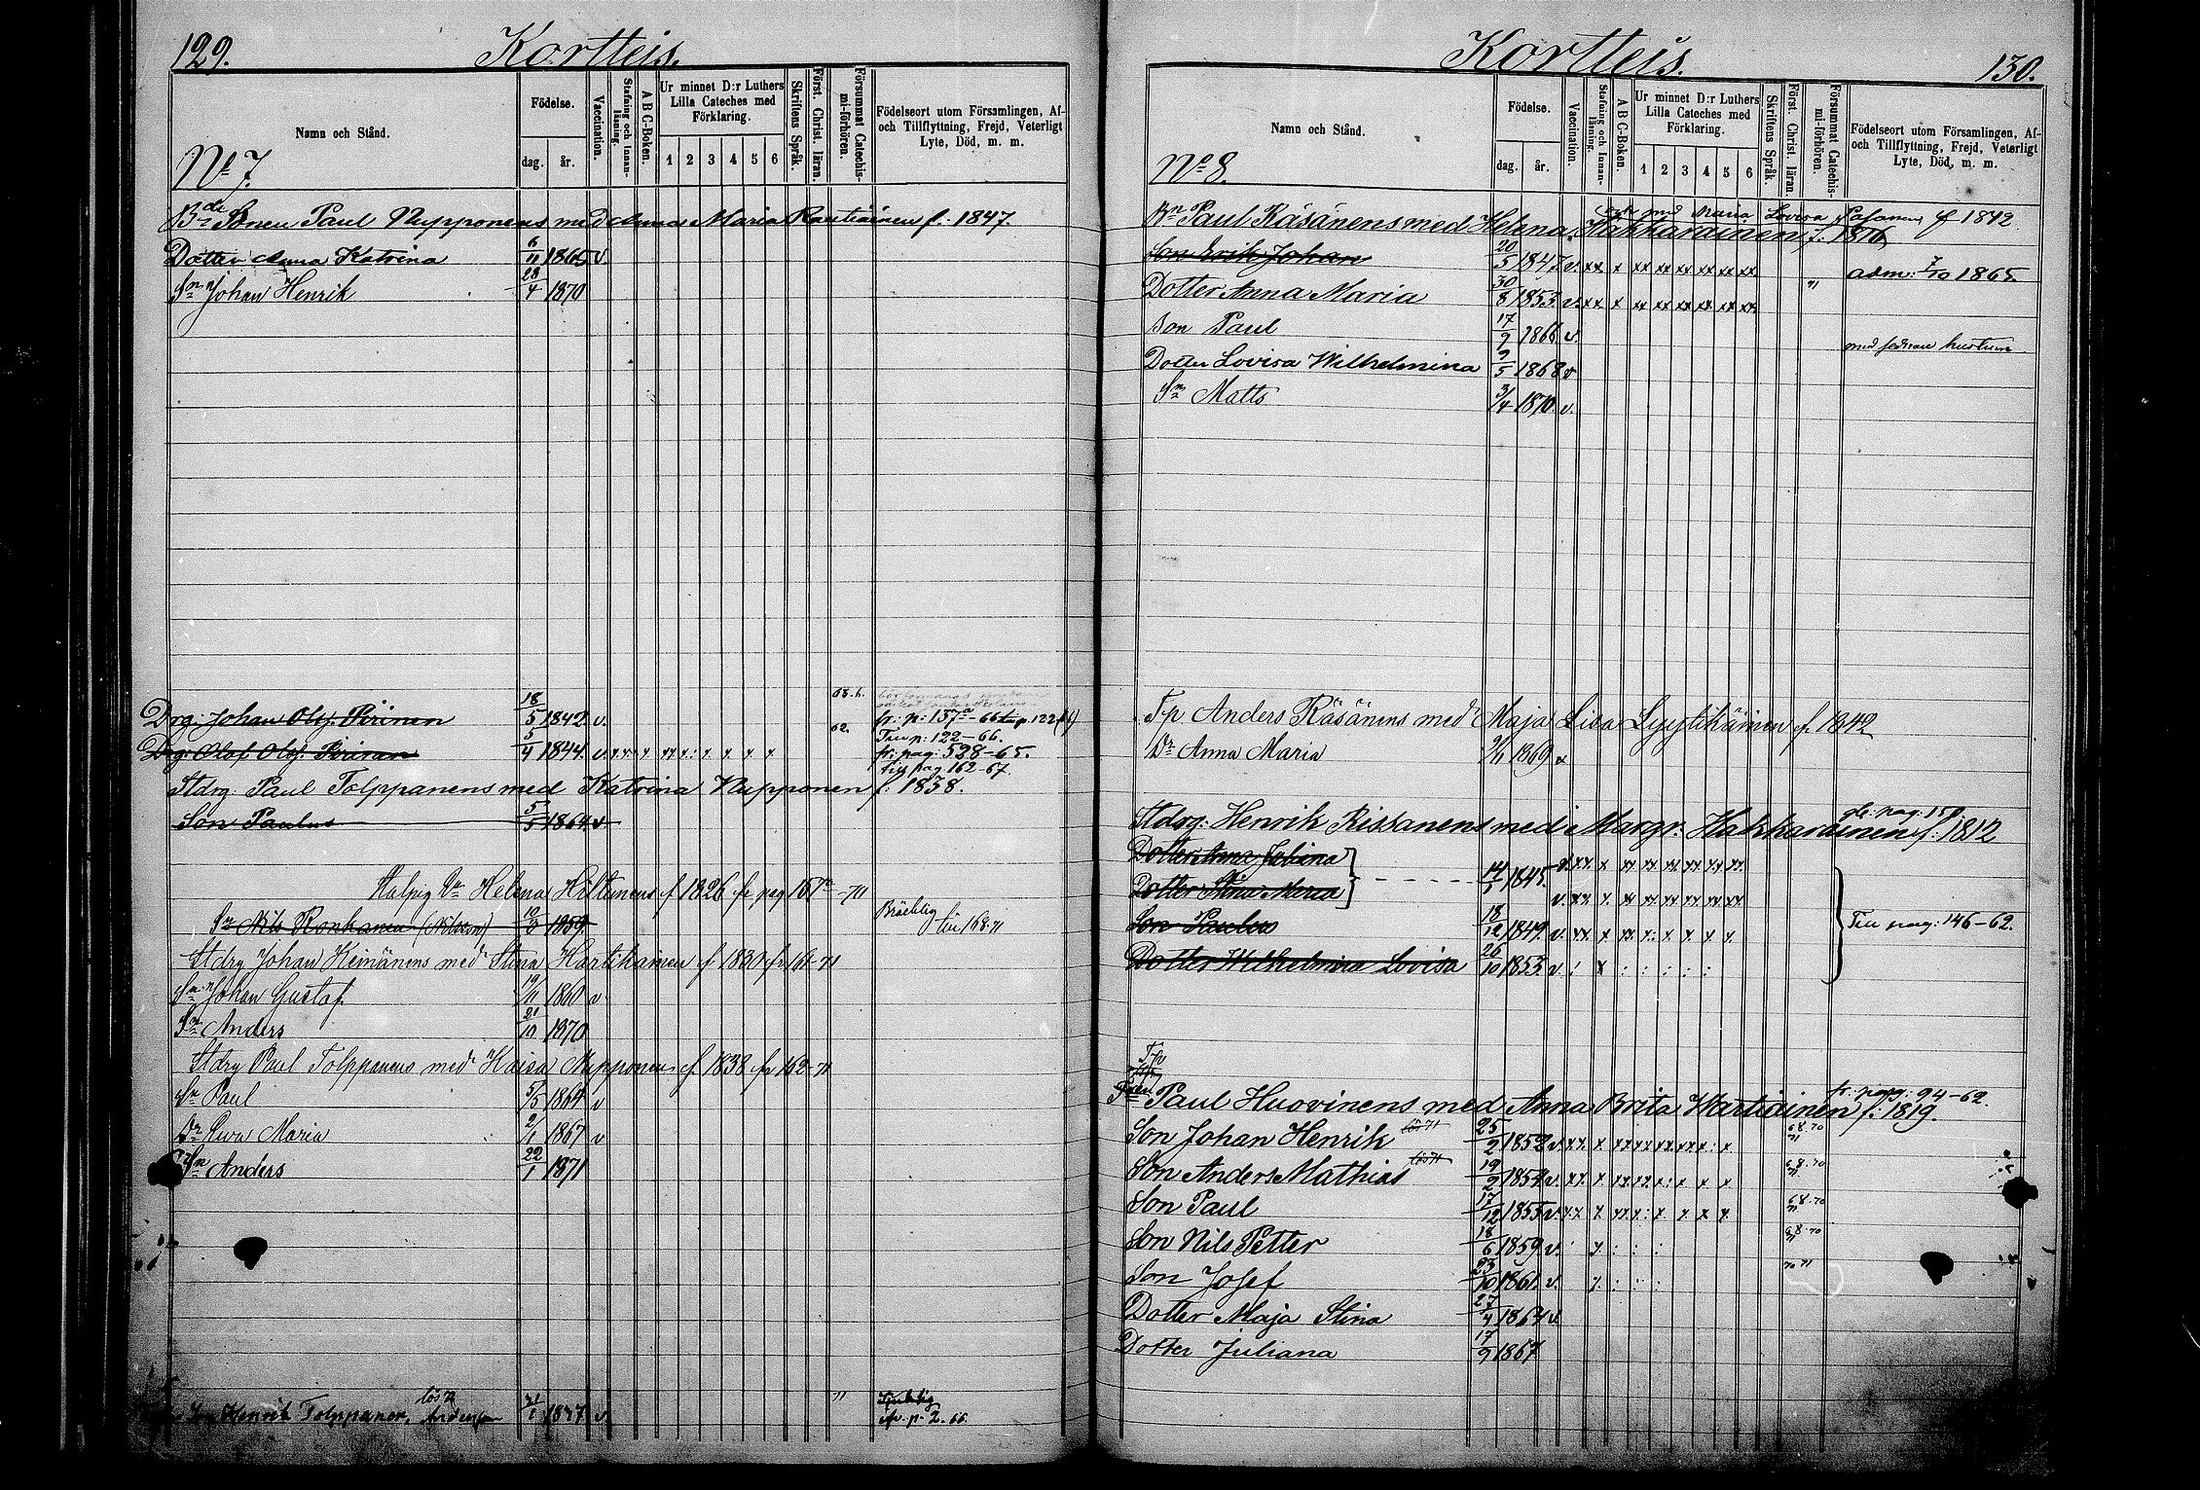 129. Kortteis.
Namn och Stånd.
Födelse.
dag. år.
Vaccination.
Stafning och Innanläsning.
A B C-Boken.
Ur minnet D:r Luthers Lilla Cateches med Förklaring.
1 2 3 4 5 6
Skriftens Språk.
Först. Christ. läran.
Försummat Catechismi-förhören.
Födelseort utom Församlingen, Af- och Tillflyttning, Frejd, Veterligt Lyte, Död, m. m.
No 7.
Sonen Paul Nupponens med Anna Maria Rautiainen f. 1847.
Dotter Anna Katrina 6/11 1865 v.
Sn Johan Henrik 28/4 1870
Drg: Johan Olof Piirinen 18/5 1842 v. fr. p: 157a-66 till p. 122
Till p: 122-66.
Drg: Olof Olofs. Piirinen 5/4 1844 v x x x xx x : x x x x 62. fr. pag: 528-65.
till pag 162-67.
Stdrg: Paul Tolppanens med Katrina Nupponen f. 1838.
Son Paulus 5/5 1864 v.
Helena Hiltunens f 1826 fr pag 157a-71
Sr Nils Ronkanen (Nilsson) 10/6 1859 Bräcklig till 168.71
Stdrg Johan Keinänens med Stina Hartikainen f 1830 fr 161-71
Sn Johan Gustaf 19/11 1860 v
Sn Anders 21/10 1870
Stdrg Paul Tolppanens med Kaisa Nupponens f 1838 fr 162-71
Sn Paul 5/5 1864 v
Dr Eva Maria 2/1 1867 v
Sn Anders 22/1 1871
Henrik Tolppanen, Andersson 21/1 1847 v. 71
p. 2. 66
Kortteis. 130.
Namn och Stånd.
Födelse.
dag. år.
Vaccination.
Stafning och Innanläsning.
A B C-Boken.
Ur minnet D:r Luthers Lilla Cateches med Förklaring.
1 2 3 4 5 6
Skriftens Språk.
Först. Christ. läran.
Försummat Catechismi-förhören.
Födelseort utom Församlingen, Af- och Tillflyttning, Frejd, Veterligt Lyte, Död, m. m.
No 8.
och med Maria Lovisa Pasanen f 1842
Bn Paul Räsänens med Helena Hakkarainen f. 1816
Son Erik Johan 20/5 1847 v. xx x xx xx xx xx xx xx adm: 7/10 1865.
Dotter Anna Maria 30/8 1853 v. xx x xx xx xx xx xx xx 71
Son Paul 17/9 1866 v.
med sednare hustrun
Dotter Lovisa Wilhelmina 9/5 1868 v
Sn Matts 3/4 1870. v.
Tp Anders Räsänens med Maja Lisa Lyytikäinen f 1842
Dr Anna Maria 9/11 1869 v
Stdrg: Henrik Rissanens med Margr. Hakkarainen f: 1812
Dotter Anna Sabina
Dotter Stina Maria 14/1 1845.
v. xx x xx xx xx xx xx xx
v. xx x xx xx xx xx xx xx
Son Paulus 18/12 1849 v. xx x xx x: x x x x
Till pag: 146-62.
Dotter Wilhelmina Lovisa 26/10 1853 v : x : : : : :
Tp
Paul Huovinens med Anna Brita Wartiainen f: 1819. fr. pag: 94-62.
Son Johan Henrik 25/2 1852 68.70 71
Son Anders Mathias 19/2 1854 v. 68.70 71
Son Paul 17/12 1855 v. 68.70 71
Son Nils Petter 18/6 1859 v. 68.70
Son Josef 23/10 1861. v. 70 71
Dotter Maja Stina 27/4 1864 v
Dotter Juliana 17/9 1867